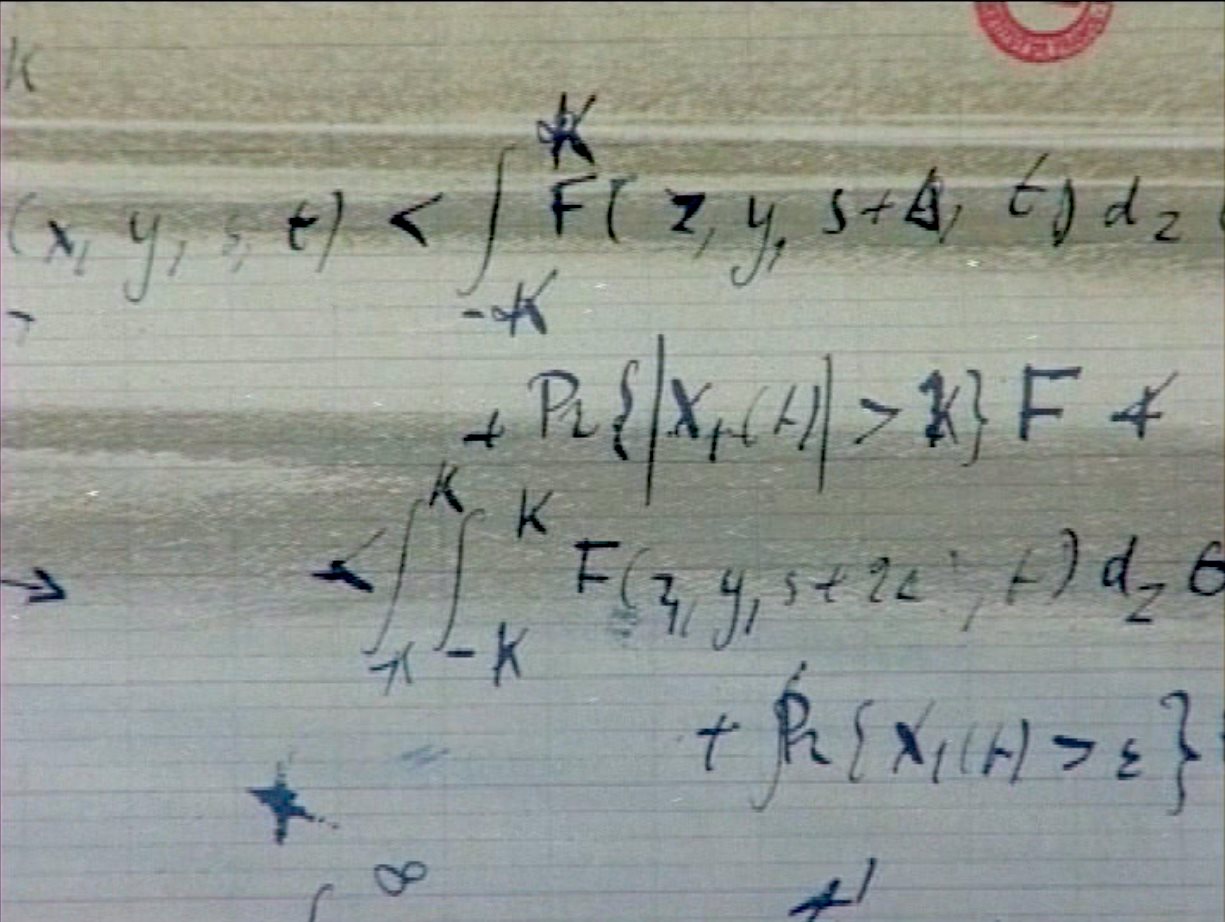 K
(x, y, s, t) < ∫_{-K}^{K} F(z, y, s+Δ, t) d_z
+ Pr{|X_1(t)| > K} F <
→ < ∫_{-K}^{K} ∫_{-K}^{K} F(z, y, s+2Δ, t) d_z G
+ Pr{X_1(t) > ε}
∫^∞